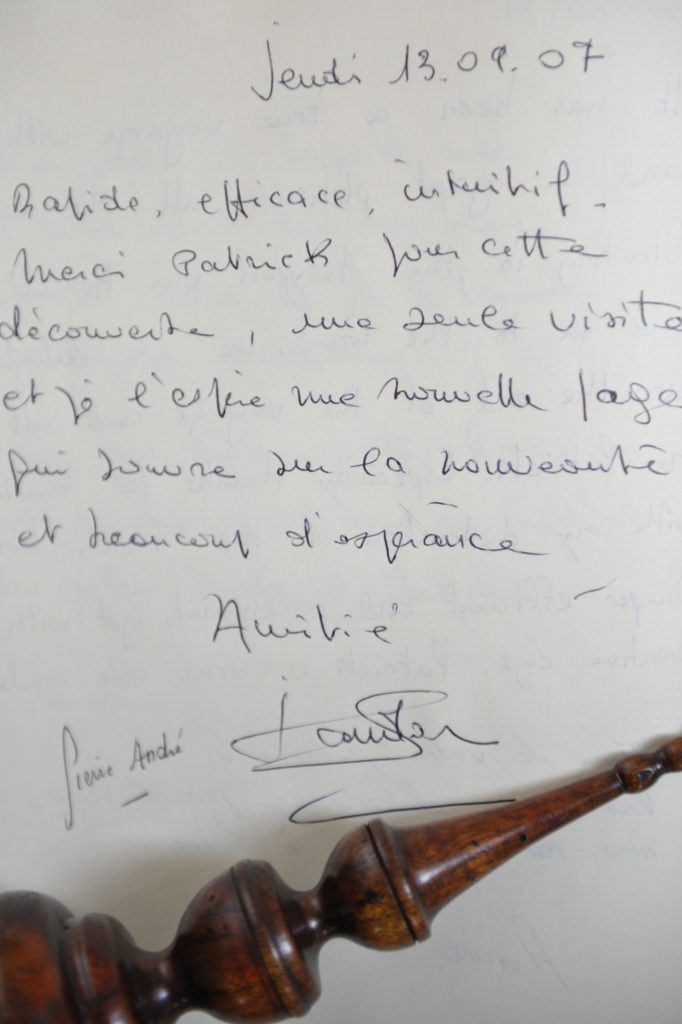 Jeudi 13.09.07
Rapide, efficace, intuitif.
Merci Patrick pour cette
découverte, une seule visite
et je l'espère une nouvelle page
qui s'ouvre sur la nouveauté
et beaucoup d'espérance
Amitié
Pierre André